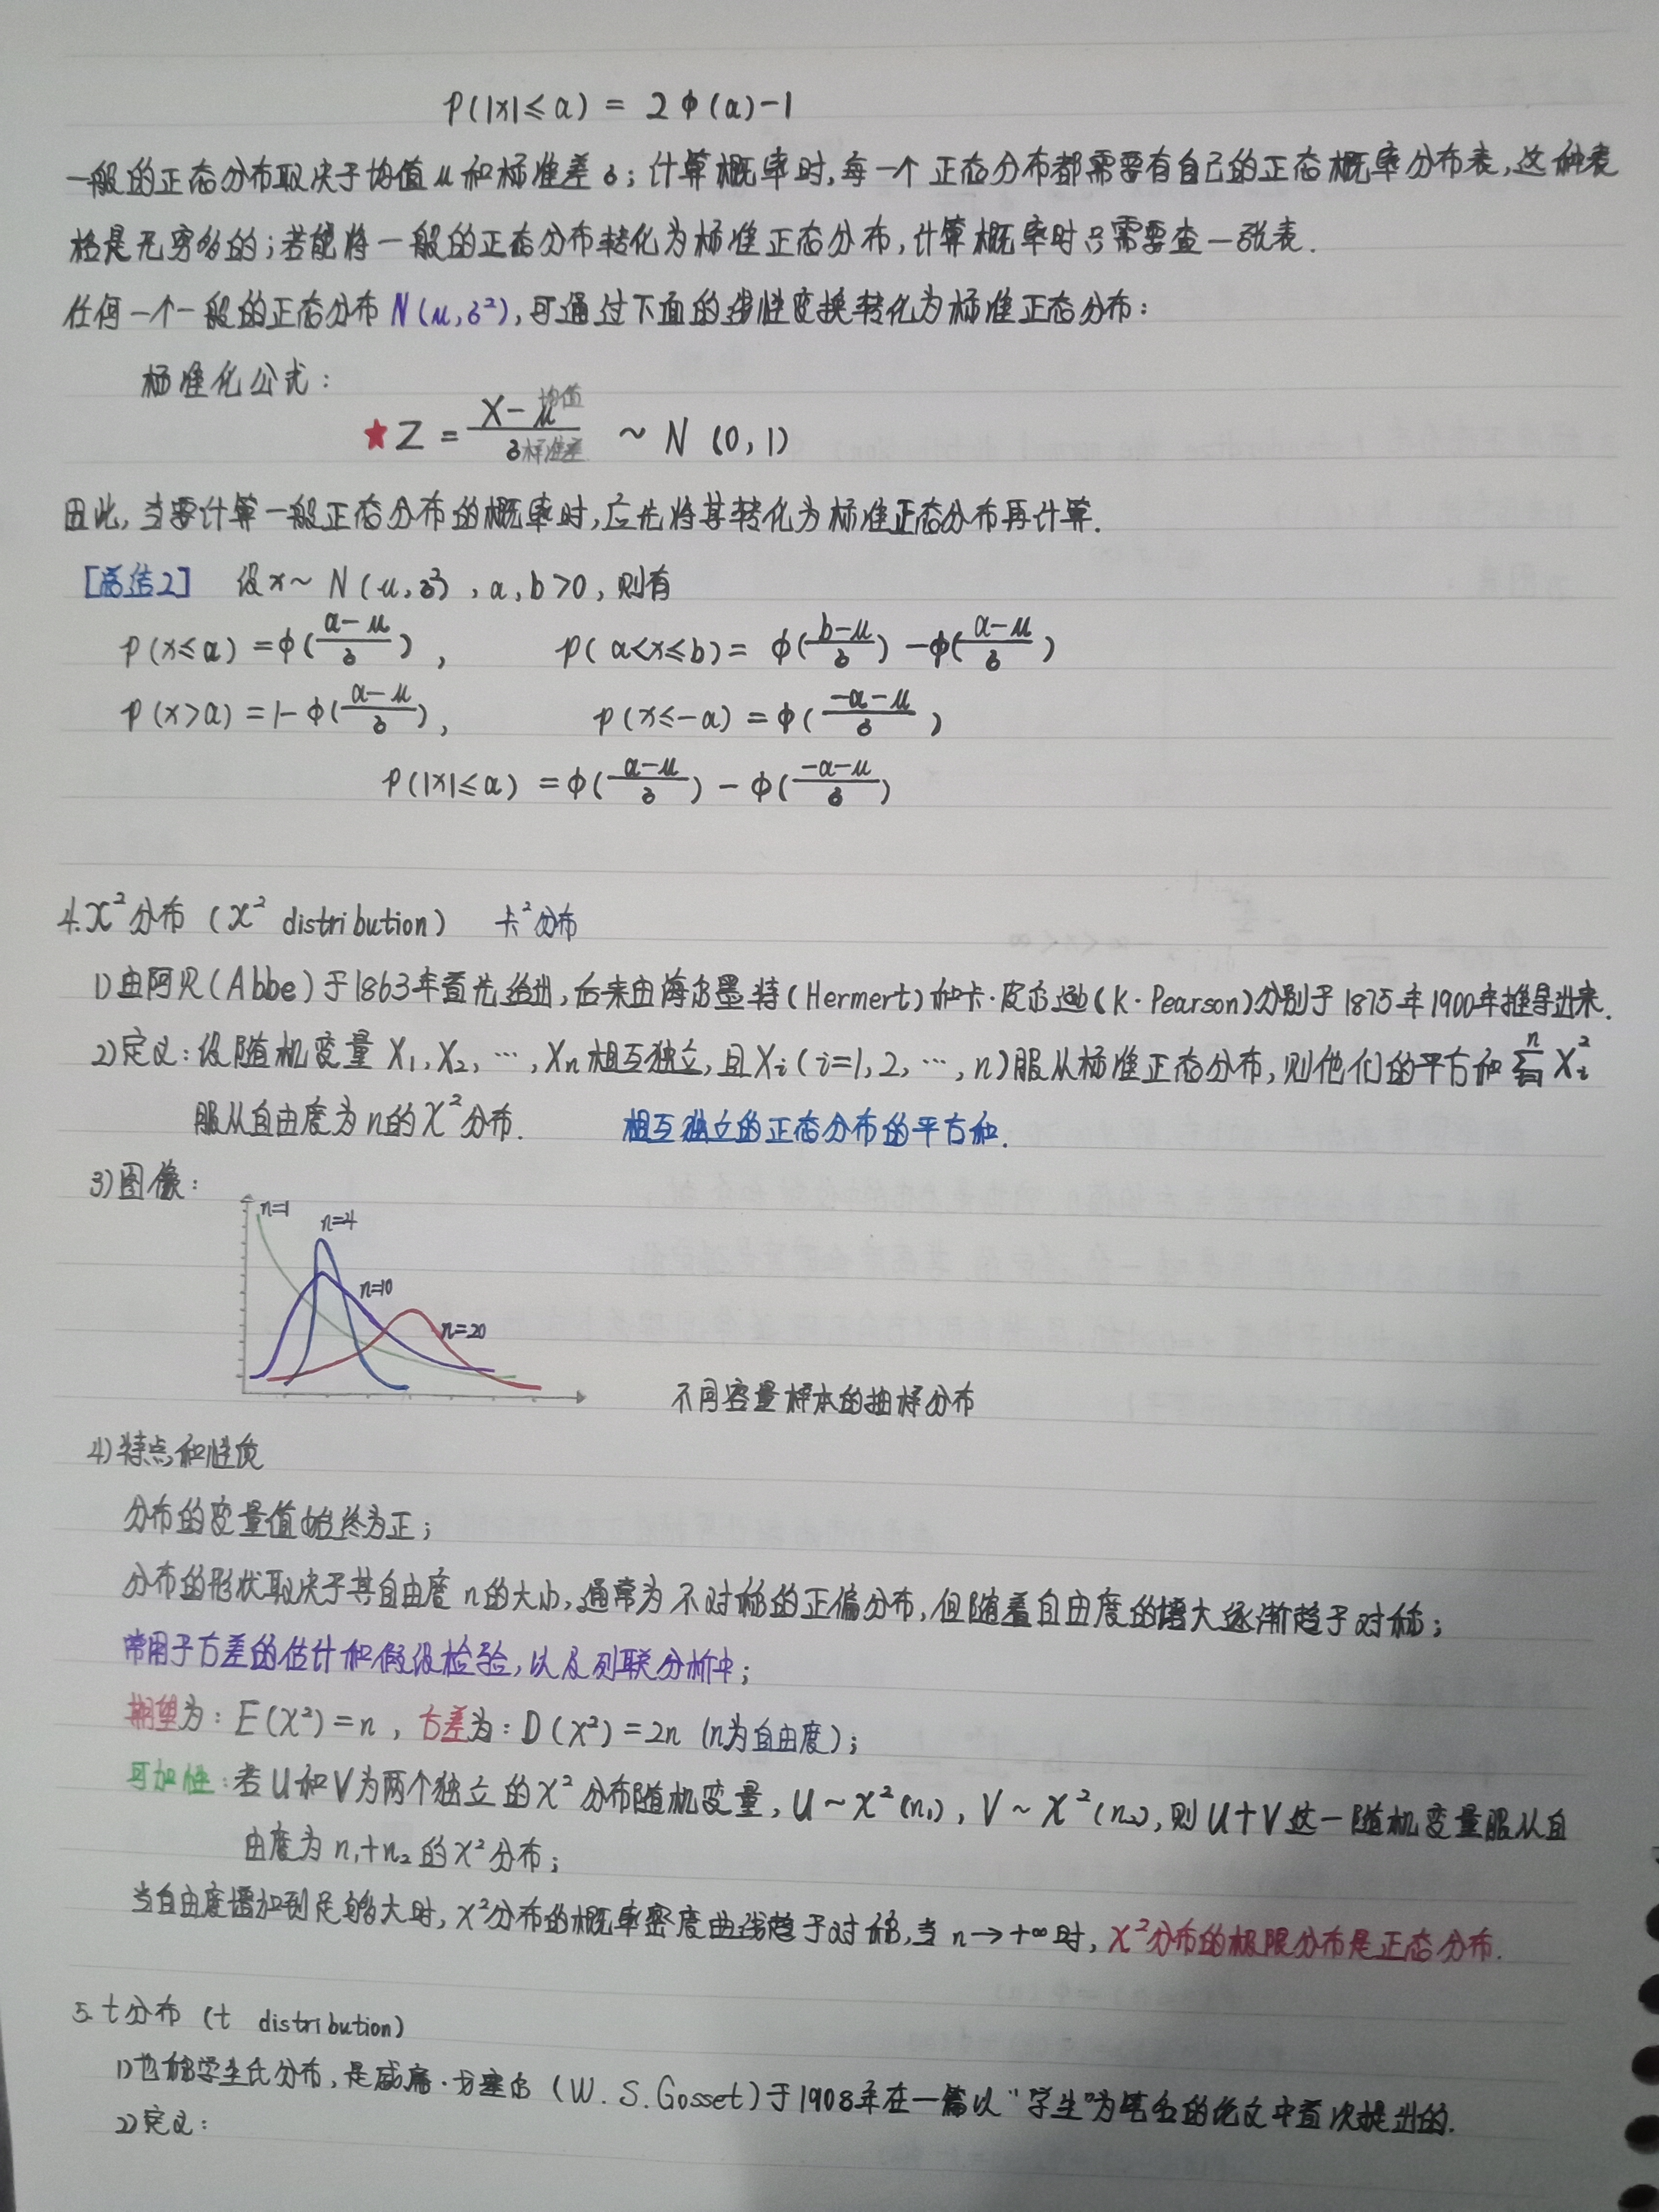 P(|x|≤a) = 2Φ(a)-1
一般的正态分布取决于均值μ和标准差δ;计算概率时,每一个正态分布都需要有自己的正态概率分布表,这种表
格是无穷多的;若能将一般的正态分布转化为标准正态分布,计算概率时只需要查一张表.
任何一个一般的正态分布N(μ,δ²),可通过下面的线性变换转化为标准正态分布:
标准化公式:
★Z = (X-μ 均值)/(δ 标准差) ~ N (0,1)
因此,当要计算一般正态分布的概率时,应先将其转化为标准正态分布再计算.
[总结2] 设x~ N(μ,δ²),a,b>0,则有
P(x≤a) =Φ((a-μ)/δ), P(a<x≤b)= Φ((b-μ)/δ) -Φ((a-μ)/δ)
P(x>a) =1-Φ((a-μ)/δ), P(x≤-a) =Φ((-a-μ)/δ)
P(|x|≤a) =Φ((a-μ)/δ) - Φ((-a-μ)/δ)
4.χ²分布 (χ² distribution) 卡²分布
1)由阿贝(Abbe)于1863年首先给出,后来由海尔墨特(Hermert)和卡·皮尔逊(K·Pearson)分别于1875年1900年推导出来.
2)定义:设随机变量X₁,X₂,…,Xn相互独立,且Xi(i=1,2,…,n)服从标准正态分布,则他们的平方和∑ⁿᵢ₌₁Xi²
服从自由度为n的χ²分布. 相互独立的正态分布的平方和.
3)图像:
n=1
n=4
n=10
n=20
不同容量样本的抽样分布
4)特点和性质
分布的变量值始终为正;
分布的形状取决于其自由度n的大小,通常为不对称的正偏分布,但随着自由度的增大逐渐趋于对称;
常用于方差的估计和假设检验,以及列联分析中;
期望为:E(χ²)=n,方差为:D(χ²)=2n (n为自由度);
可加性:若U和V为两个独立的χ²分布随机变量,U~χ²(n₁),V~χ²(n₂),则U+V这一随机变量服从自
由度为n₁+n₂的χ²分布;
当自由度增加到足够大时,χ²分布的概率密度曲线趋于对称,当n→+∞时,χ²分布的极限分布是正态分布.
5.t分布 (t distribution)
1)也称学生氏分布,是威廉·戈塞尔(W.S.Gosset)于1908年在一篇以“学生”为笔名的论文中首次提出的.
2)定义: